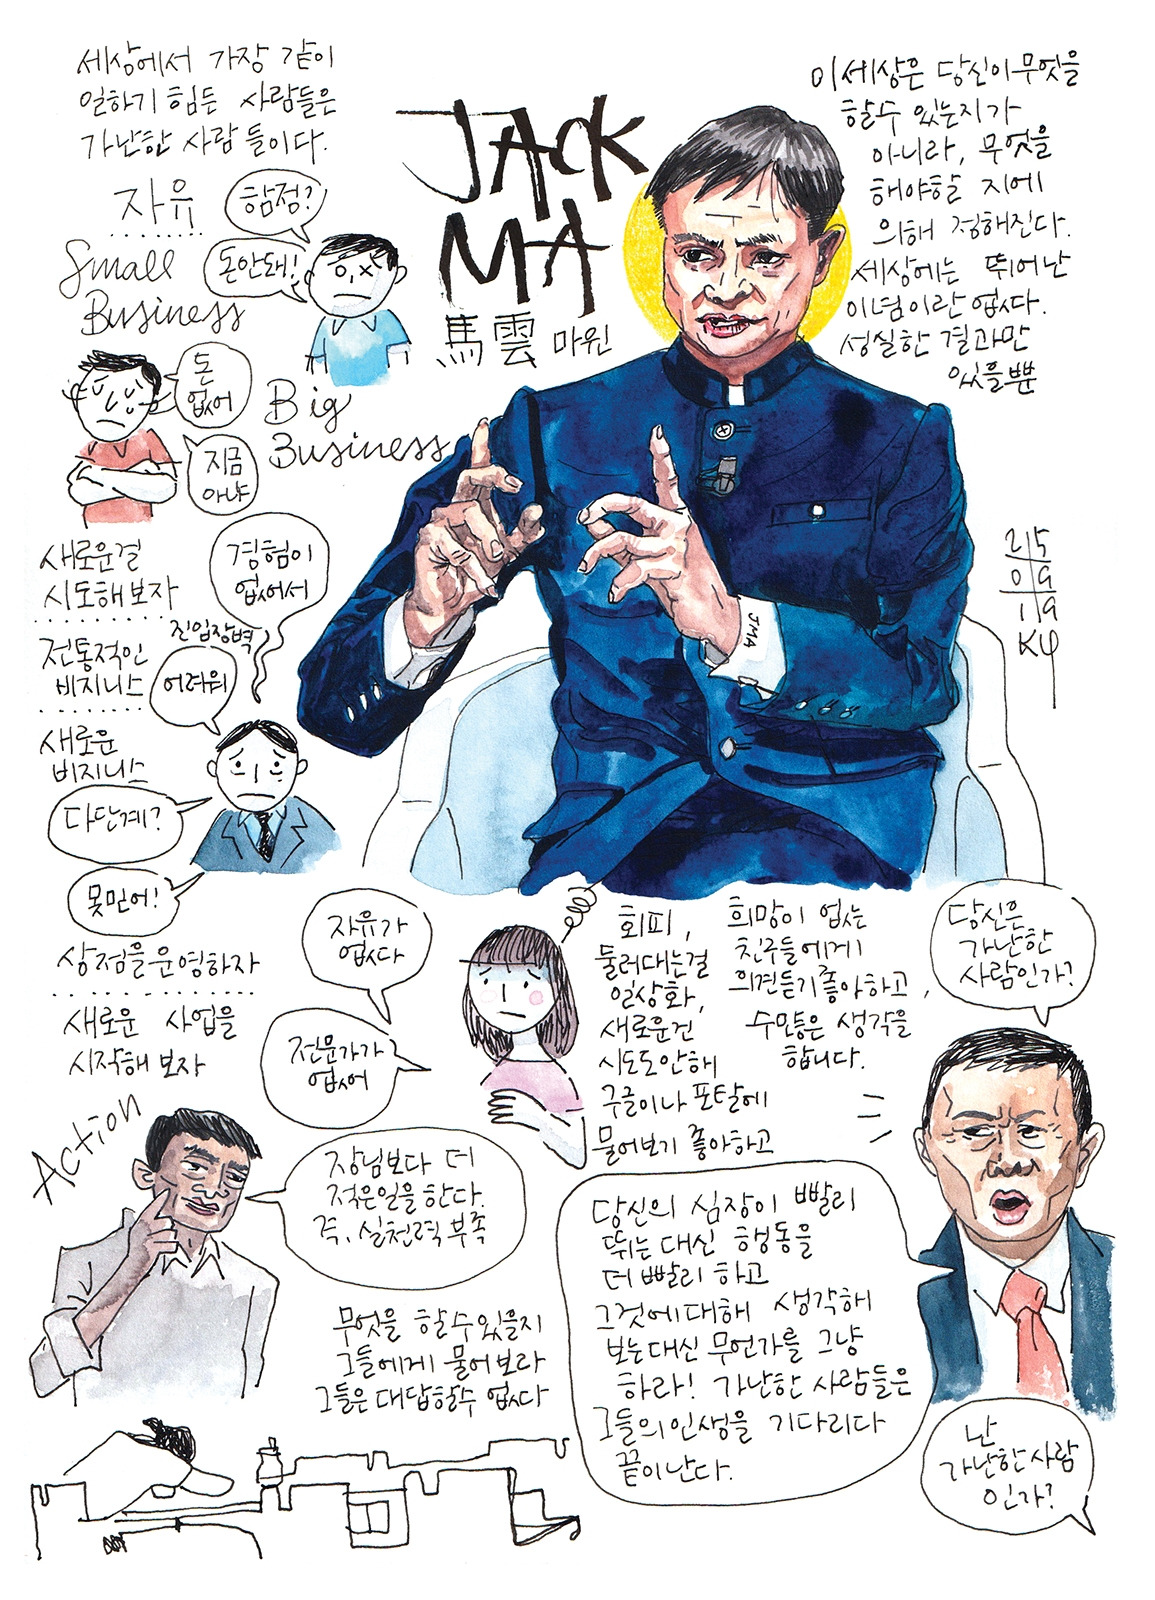 세상에서 가장 같이
일하기 힘든 사람들은
가난한 사람 들이다.
JACK
MA
馬雲 마윈
이 세상은 당신이 무엇을
할수 있는지가
아니라, 무엇을
해야할 지에
의해 정해진다.
세상에는 뛰어난
이념이란 없다.
성실한 결과만
있을뿐
자유
함정?
돈안돼!
Small
Business
돈
없어
지금
아냐
Big
Business
새로운걸
시도해보자
경험이
없어서
전통적인
비지니스
진입장벽
어려워
새로운
비지니스
다단계?
못믿어!
JMA
215
09
19
KY
상점을운영하자
새로운 사업을
시작해 보자
자유가
없다
전문가가
없어
회피,
둘러대는걸
일상화,
새로운건
시도도안해
구글이나 포탈에
물어보기 좋아하고
희망이 없는
친구들에게
의견듣기좋아하고,
수만톤은 생각을
합니다.
당신은
가난한
사람인가?
Action
장님보다 더
적은일을한다.
즉, 실천력부족
무엇을 할수있을지
그들에게 물어보라
그들은대답할수 없다
당신의 심장이 빨리
뛰는대신 행동을
더 빨리 하고
그것에대해 생각해
보는대신 무언가를 그냥
하라! 가난한 사람들은
그들의인생을 기다리다
끝이난다.
난
가난한사람
인가?